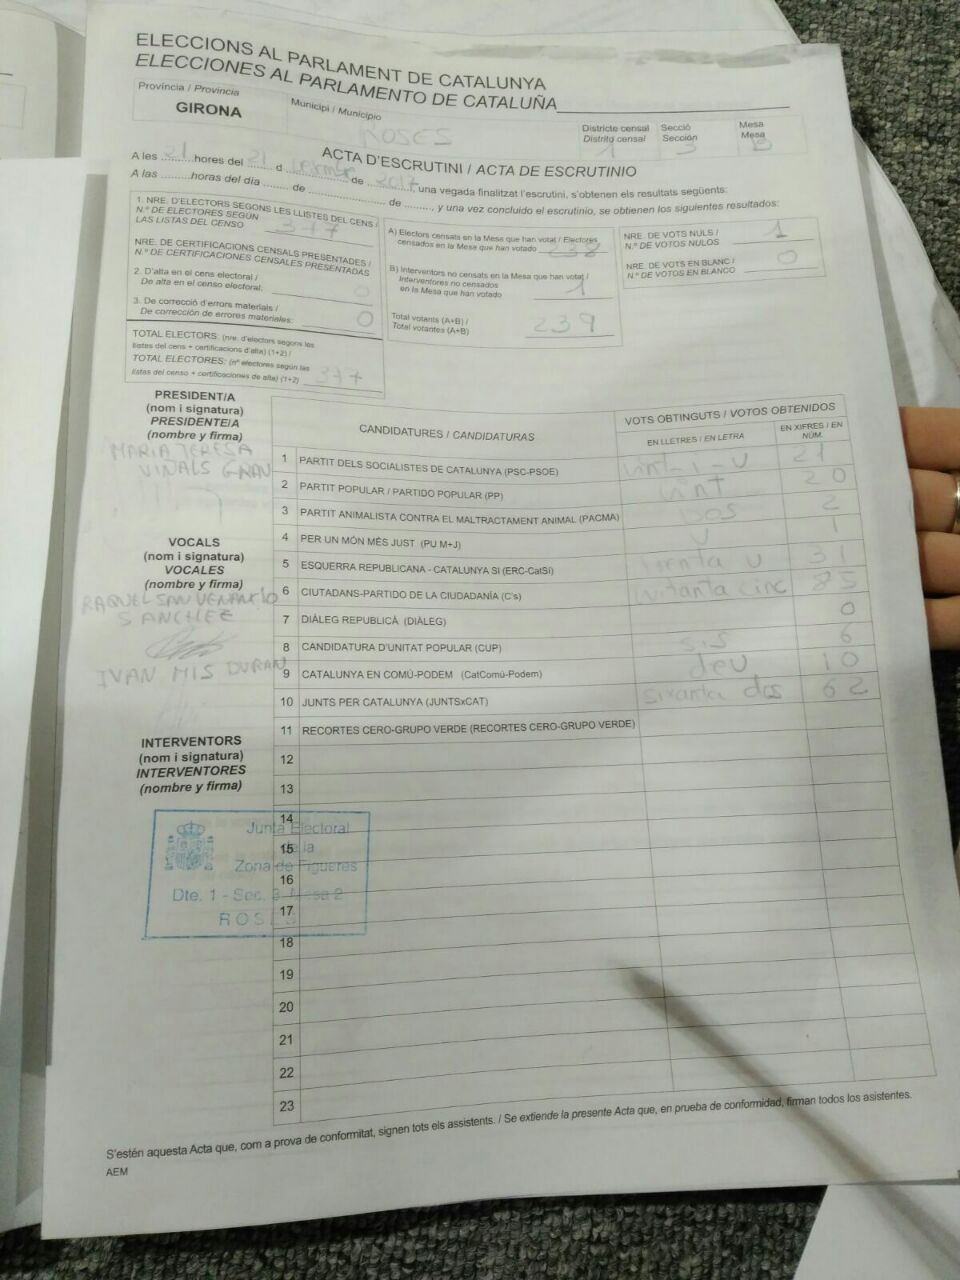 ELECCIONS AL PARLAMENT DE CATALUNYA
ELECCIONES AL PARLAMENTO DE CATALUÑA
Província / Provincia
GIRONA
Municipi / Municipio
ROSES
Districte censal
Distrito censal
1
Secció
Sección
3
Mesa
Mesa
B
ACTA D'ESCRUTINI / ACTA DE ESCRUTINIO
A les 21 hores del 21 d de 2017, una vegada finalitzat l'escrutini, s'obtenen els resultats següents:
A las ......... horas del día ....... de ........................ de ........, y una vez concluido el escrutinio, se obtienen los siguientes resultados:
1. NRE. D'ELECTORS SEGONS LES LLISTES DEL CENS /
N.º DE ELECTORES SEGÚN
LAS LISTAS DEL CENSO 377
NRE. DE CERTIFICACIONS CENSALS PRESENTADES /
N.º DE CERTIFICACIONES CENSALES PRESENTADAS
2. D'alta en el cens electoral /
De alta en el censo electoral: 0
3. De correcció d'errors materials /
De corrección de errores materiales: 0
TOTAL ELECTORS: (nre. d'electors segons les
llistes del cens + certificacions d'alta) (1+2) /
TOTAL ELECTORES: (nº electores según las
listas del censo + certificaciones de alta) (1+2) 377
A) Electors censats en la Mesa que han votat / Electores
censados en la Mesa que han votado 238
B) Interventors no censats en la Mesa que han votat /
Interventores no censados
en la Mesa que han votado 1
Total votants (A+B) /
Total votantes (A+B) 239
NRE. DE VOTS NULS /
N.º DE VOTOS NULOS 1
NRE. DE VOTS EN BLANC /
N.º DE VOTOS EN BLANCO 0
PRESIDENT/A
(nom i signatura)
PRESIDENTE/A
(nombre y firma)
MARIA TERESA
VINALS GRAU
VOCALS
(nom i signatura)
VOCALES
(nombre y firma)
RAQUEL SAN VENANCIO
SANCHEZ
IVAN MIS DURAN
INTERVENTORS
(nom i signatura)
INTERVENTORES
(nombre y firma)
CANDIDATURES / CANDIDATURAS
VOTS OBTINGUTS / VOTOS OBTENIDOS
EN LLETRES / EN LETRA
EN XIFRES / EN NÚM.
1 PARTIT DELS SOCIALISTES DE CATALUNYA (PSC-PSOE) vint-i-u 21
2 PARTIT POPULAR / PARTIDO POPULAR (PP) vint 20
3 PARTIT ANIMALISTA CONTRA EL MALTRACTAMENT ANIMAL (PACMA) DOS 2
4 PER UN MÓN MÉS JUST (PU M+J) U 1
5 ESQUERRA REPUBLICANA - CATALUNYA SI (ERC-CatSí) trenta u 31
6 CIUTADANS-PARTIDO DE LA CIUDADANÍA (C's) vuitanta cinc 85
7 DIÀLEG REPUBLICÀ (DIÀLEG) 0
8 CANDIDATURA D'UNITAT POPULAR (CUP) sis 6
9 CATALUNYA EN COMÚ-PODEM (CatComú-Podem) deu 10
10 JUNTS PER CATALUNYA (JUNTSxCAT) sixanta dos 62
11 RECORTES CERO-GRUPO VERDE (RECORTES CERO-GRUPO VERDE)
12
13
14
15
16
17
18
19
20
21
22
23
Junta Electoral
de la
Zona de Figueres
Dte. 1 - Sec. 3 Mesa 2
ROSES
S'estén aquesta Acta que, com a prova de conformitat, signen tots els assistents. / Se extiende la presente Acta que, en prueba de conformidad, firman todos los asistentes.
AEM